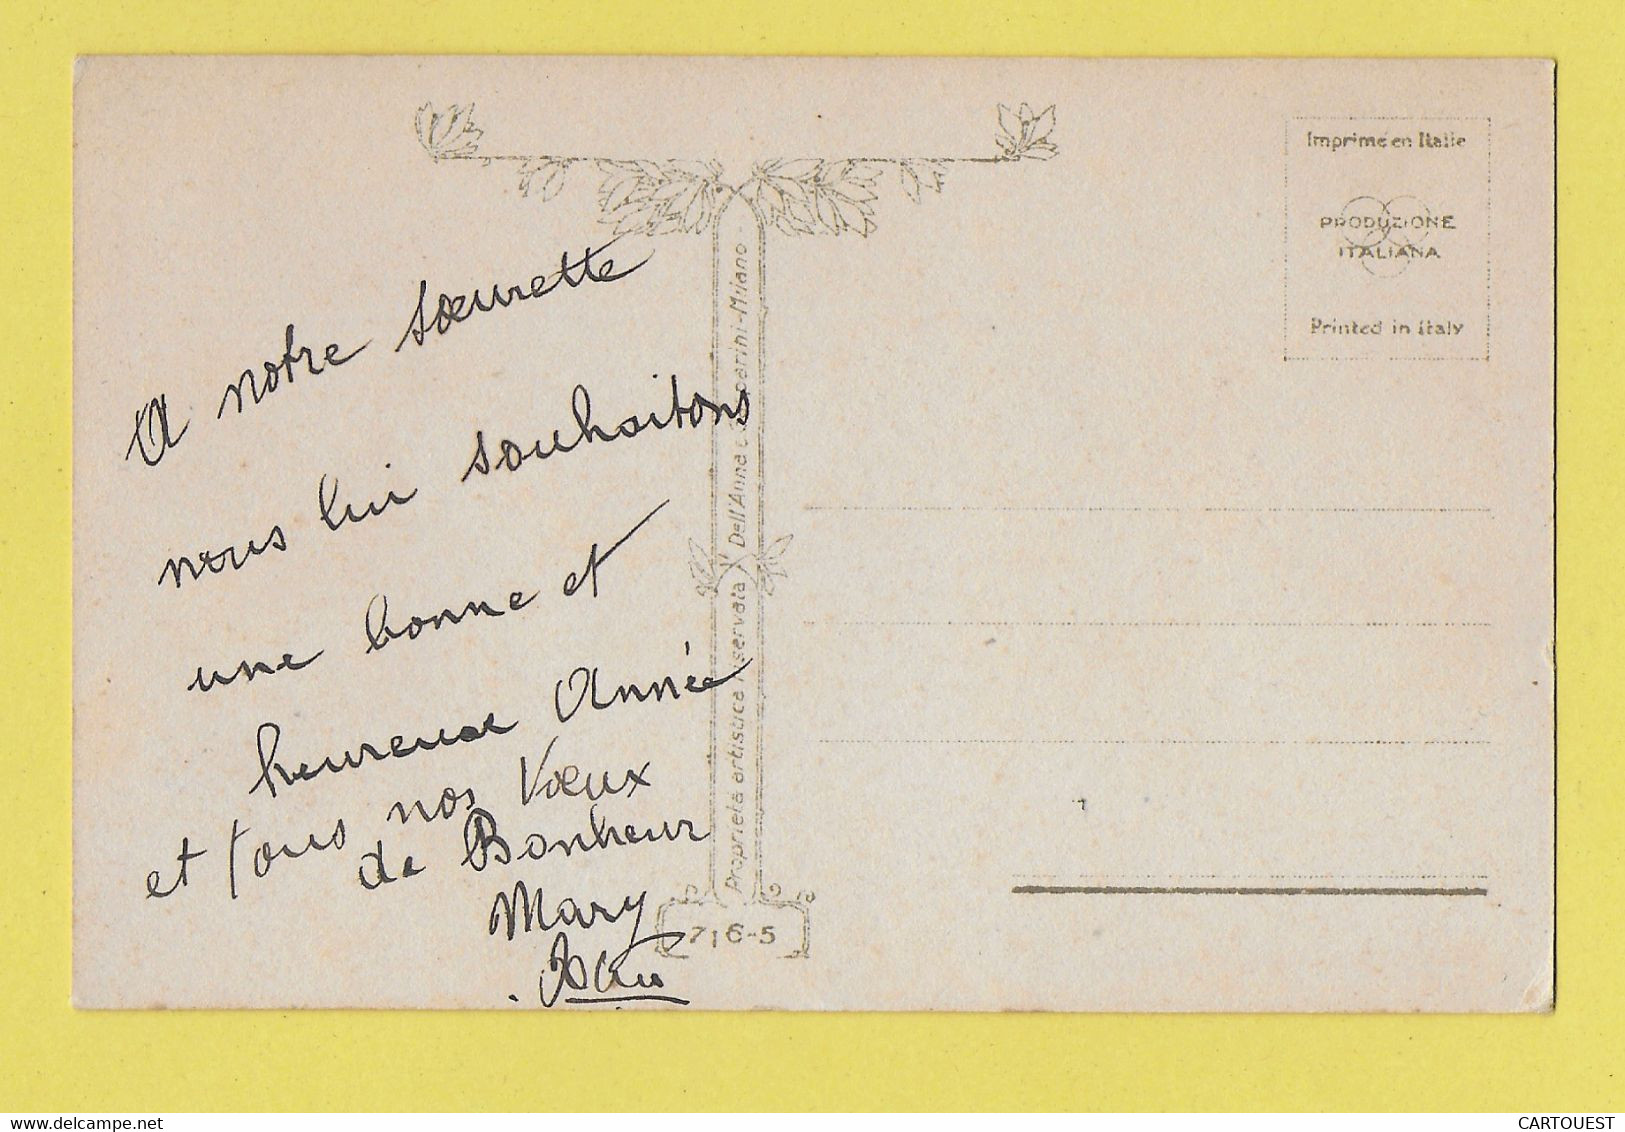 A notre sœurette
nous lui souhaitons
une bonne et
heureuse Année
et tous nos Vœux
de Bonheur
Mary
Proprietà artistica riservata Dell'Anna e Gasparini-Milano
716-5
Imprimé en Italie
PRODUZIONE
ITALIANA
Printed in Italy
© www.delcampe.net
CARTOUEST